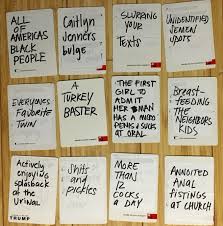 ALL
OF
AMERICAS
BLACK
PEOPLE
Caitlyn
Jenners
bulge
SLURRING
YOUR
TEXTS
UNIDENTIFIED
SEMEN
SPOTS
EVERYONES
FAVORITE
TWIN
A
TURKEY
BASTER
THE FIRST
GIRL TO
ADMIT IT
HER MAN
HAS A MICRO
PENIS & SUCKS
AT ORAL
BREAST-
FEEDING
THE
NEIGHBORS
KIDS
Actively
enjoying
splashback
at the
urinal
TRUMP
Shits
and
pickles
MORE
THAN
12
COCKS
A DAY
ANNOINTED
ANAL
FISTINGS
AT CHURCH